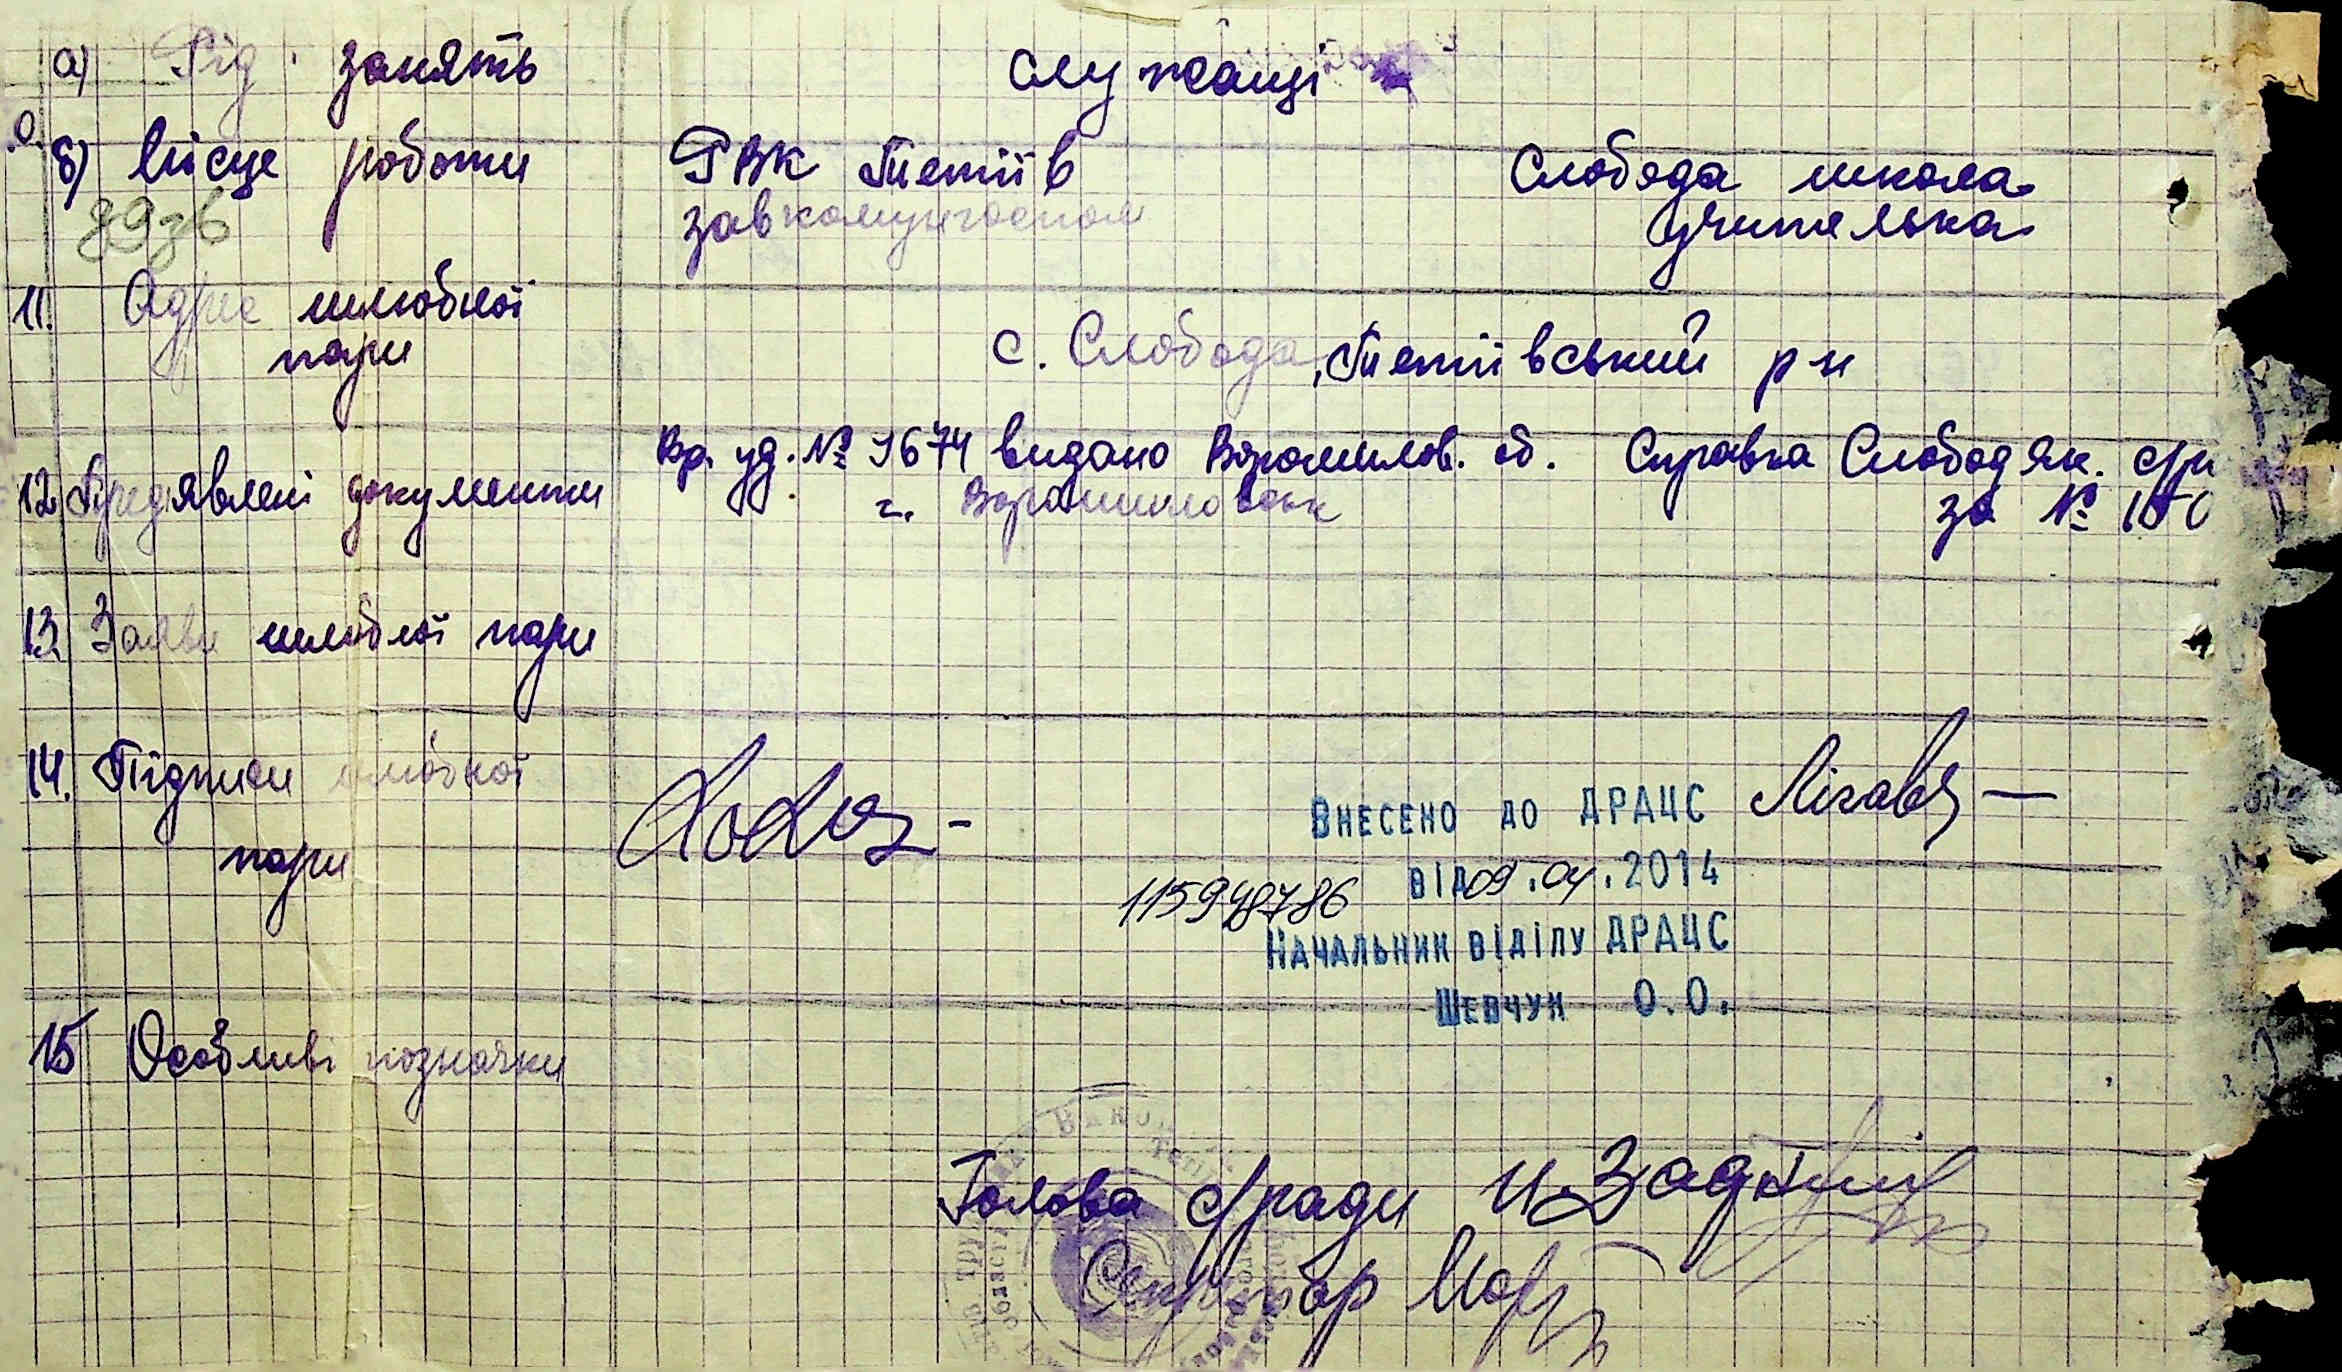 а) Рід занять Служащі
б) Місце роботи РВК Тетіїв Слобода школа
завкомунгоспом учителька
11. Адрес шлюбної
пари с. Слобода, Тетіївський р-н
Вр. уд. № 9674 видано Ворошилов. об. Справка Слободян. с/ра
12. Предявлені документи г. Ворошиловськ за №
13. Заяви шлюбної пари
14. Підписи шлюбної
пари
Внесено до ДРАЦС
115948786 від 09.04.2014
Начальник відділу ДРАЦС
Шевчук О.О.
15 Особливі позначки
Голова с/ради
Секретар